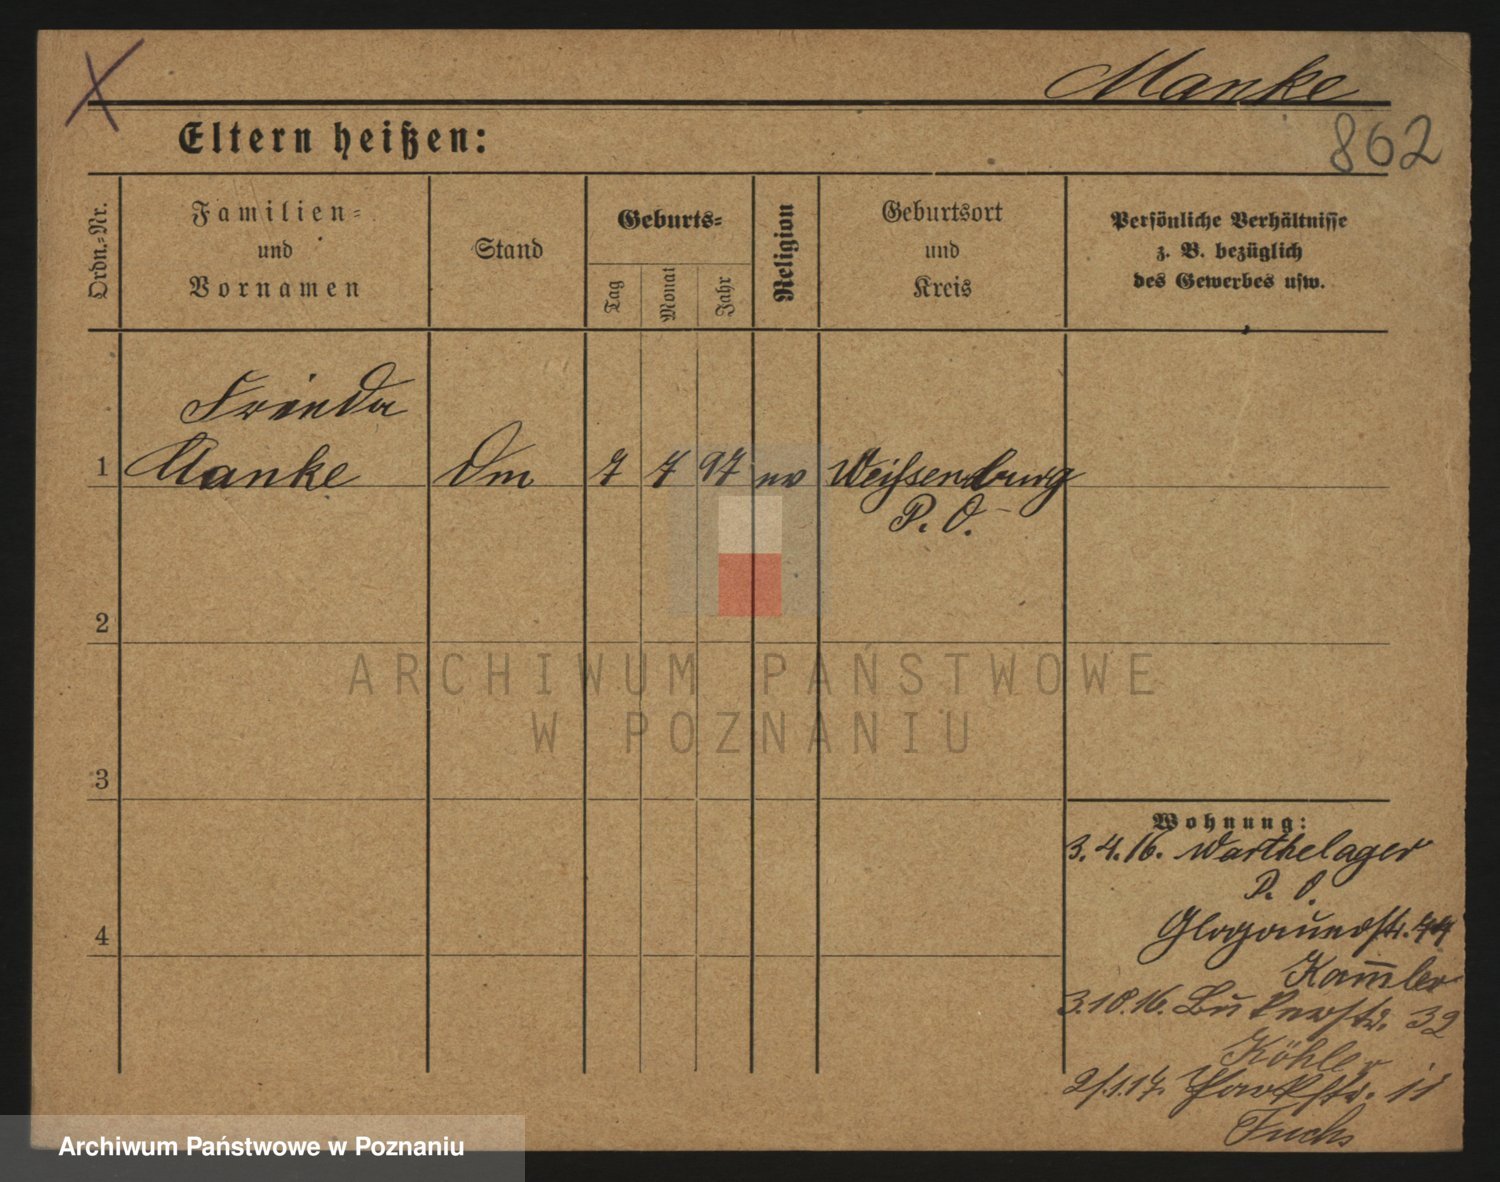 Manke
862
Eltern heißen:
Ordn.-Nr.
Familien-
und
Vornamen
Stand
Geburts-
Tag
Monat
Jahr
Religion
Geburtsort
und
Kreis
Persönliche Verhältnisse
z. B. bezüglich
des Gewerbes usw.
Frieda
1 Manke Dm 7 7 97 ev Weißenburg
P. O.
2
3
4
Wohnung:
3.4.16. Warthelager
P. O.
Glogauerstr. 44
Kam̅ler
3.10.16. Bukerstr. 32
Köhler
2/1.17. Parkstr. 11
Fuchs
ARCHIWUM PAŃSTWOWE
W POZNANIU
Archiwum Państwowe w Poznaniu